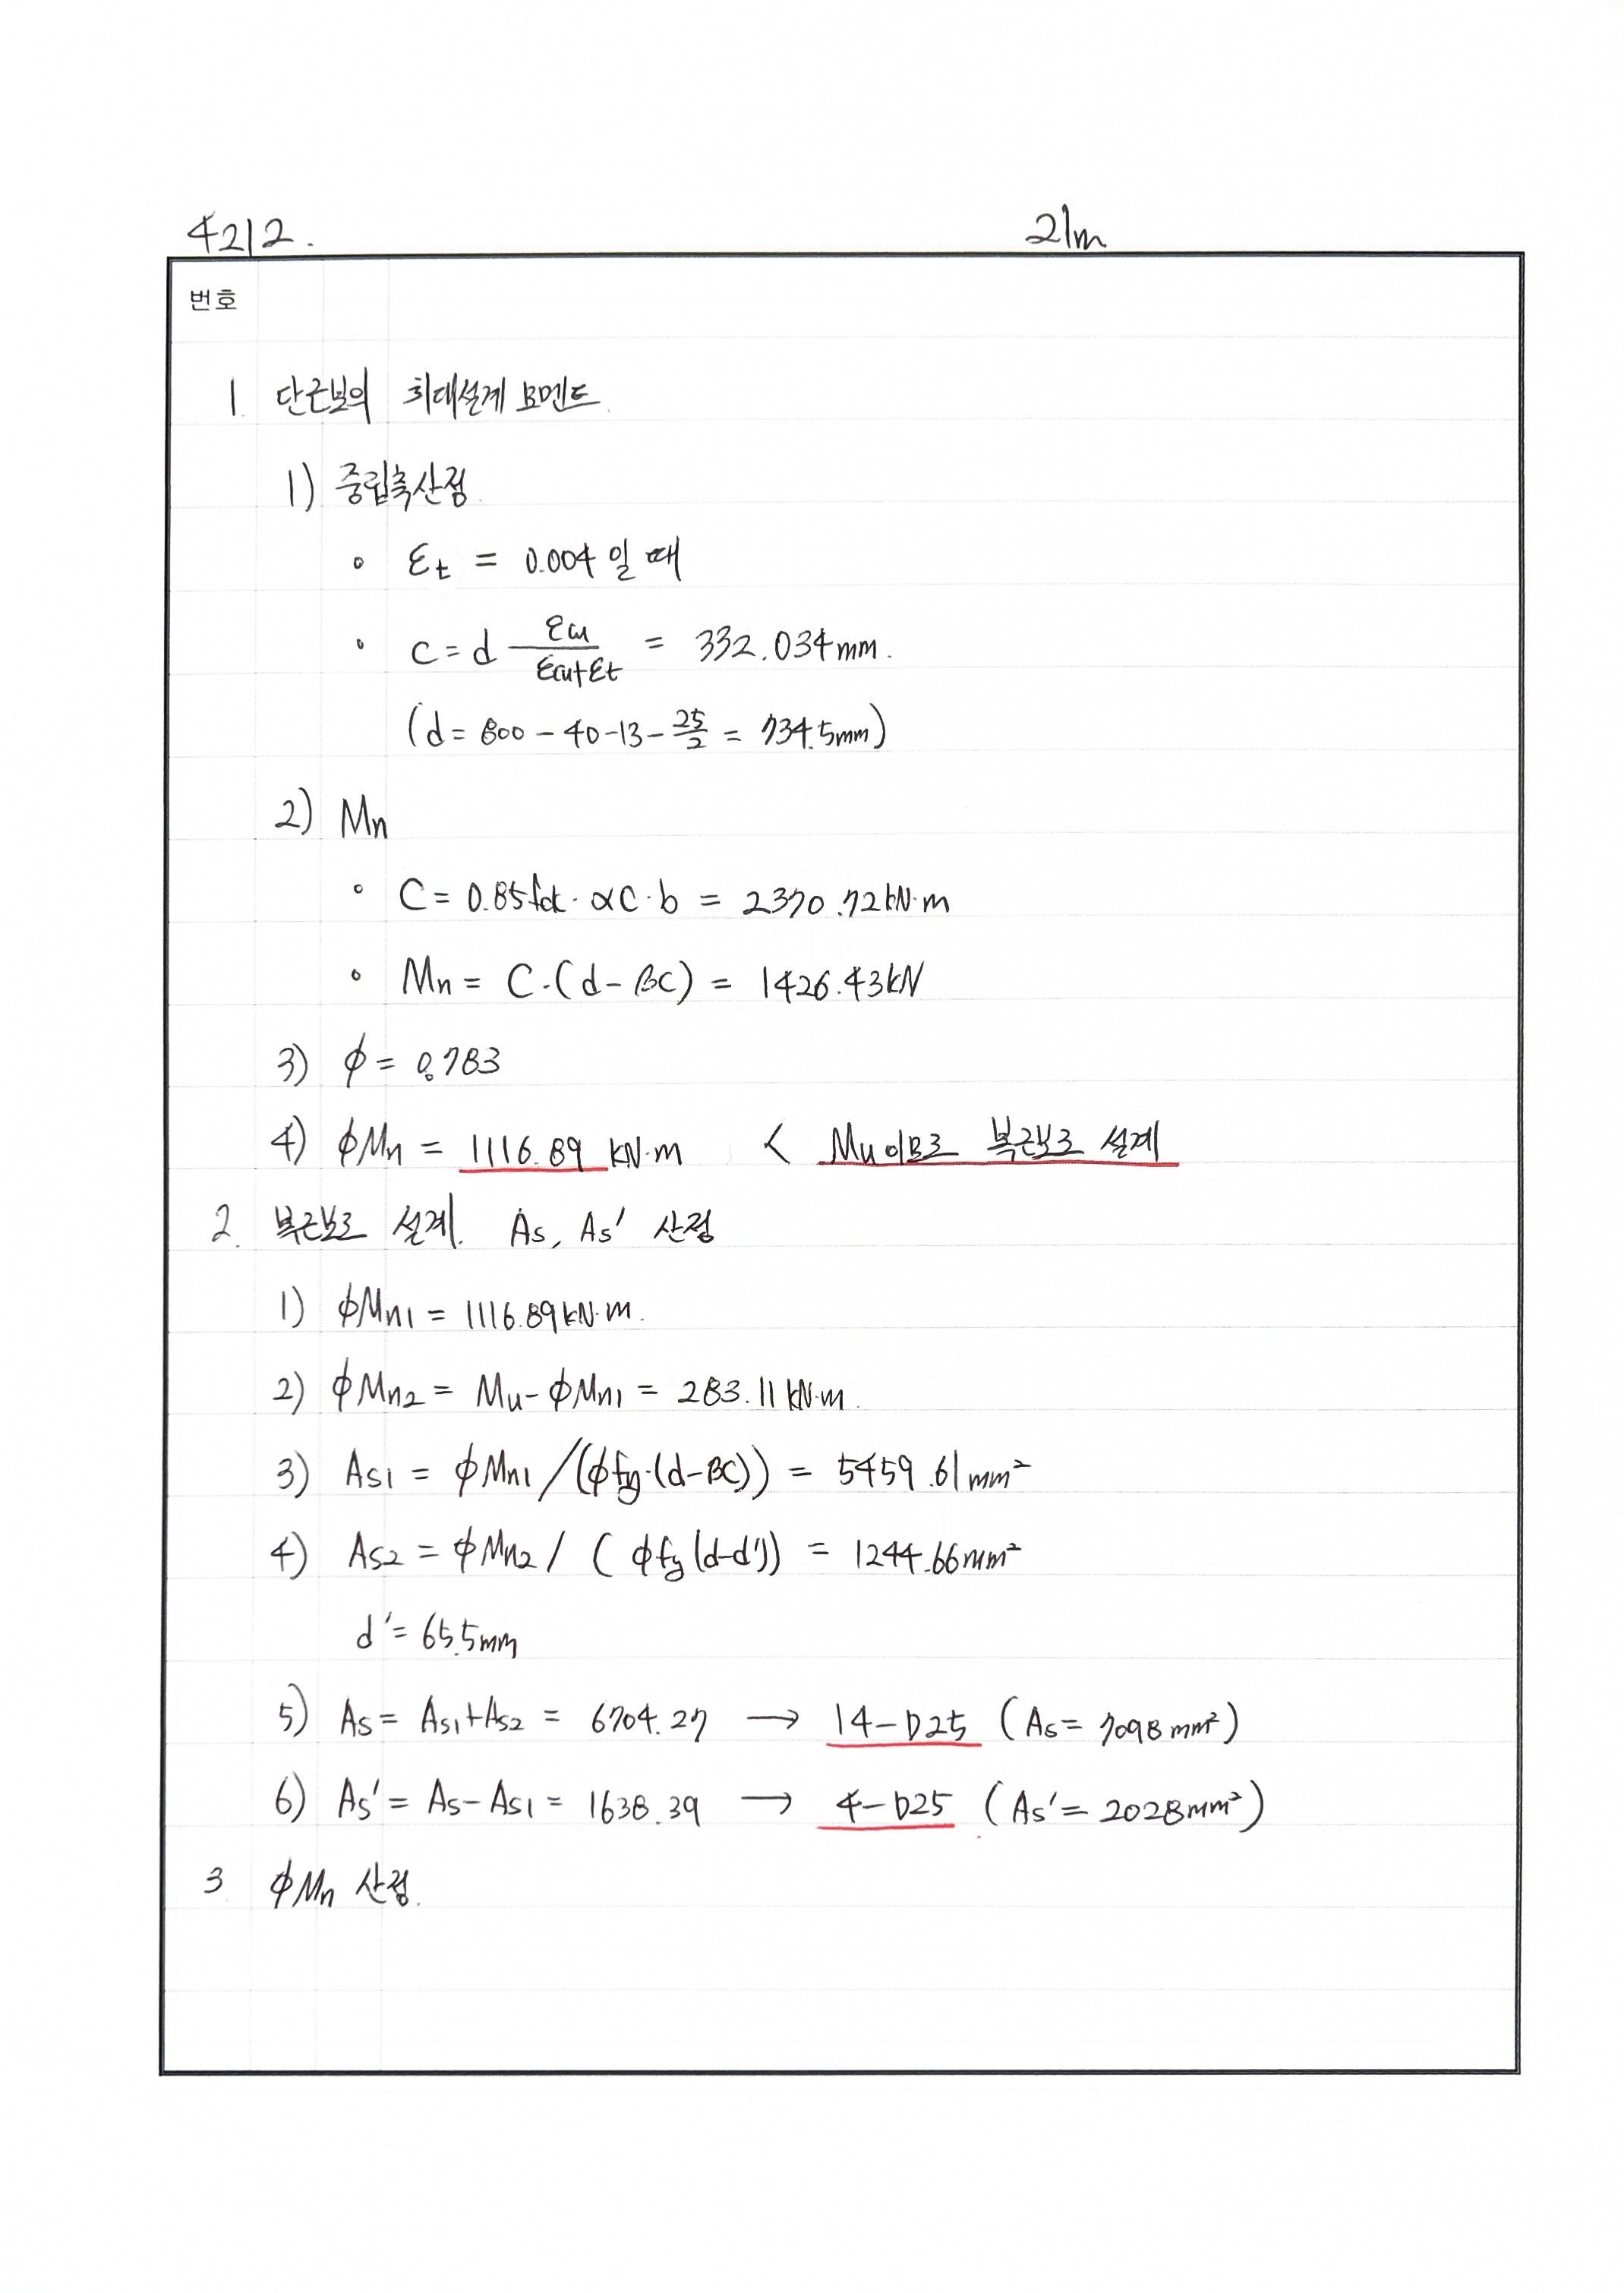 4212.
21m
번호
1. 단근보의 최대설계 모멘트
1) 중립축산정.
∘ εt = 0.004 일 때
∘ c = d εcu/(εcu+εt) = 332.034mm.
(d = 800 - 40 - 13 - 25/2 = 734.5mm)
2) Mn
∘ C = 0.85fck · αC · b = 2370.72kN·m
∘ Mn = C·(d - βC) = 1426.43kN
3) ϕ = 0.783
4) ϕMn = 1116.89 kN·m < Mu 이므로 복근보로 설계
2. 복근보로 설계. As, As' 산정
1) ϕMn1 = 1116.89kN·m.
2) ϕMn2 = Mu - ϕMn1 = 283.11kN·m.
3) As1 = ϕMn1/(ϕfy·(d-βC)) = 5459.61mm²
4) As2 = ϕMn2 / (ϕfy(d-d')) = 1244.66mm²
d' = 65.5mm
5) As = As1+As2 = 6704.27 → 14-D25 (As = 7098mm²)
6) As' = As - As1 = 1638.39 → 4-D25 (As' = 2028mm²)
3 ϕMn 산정.